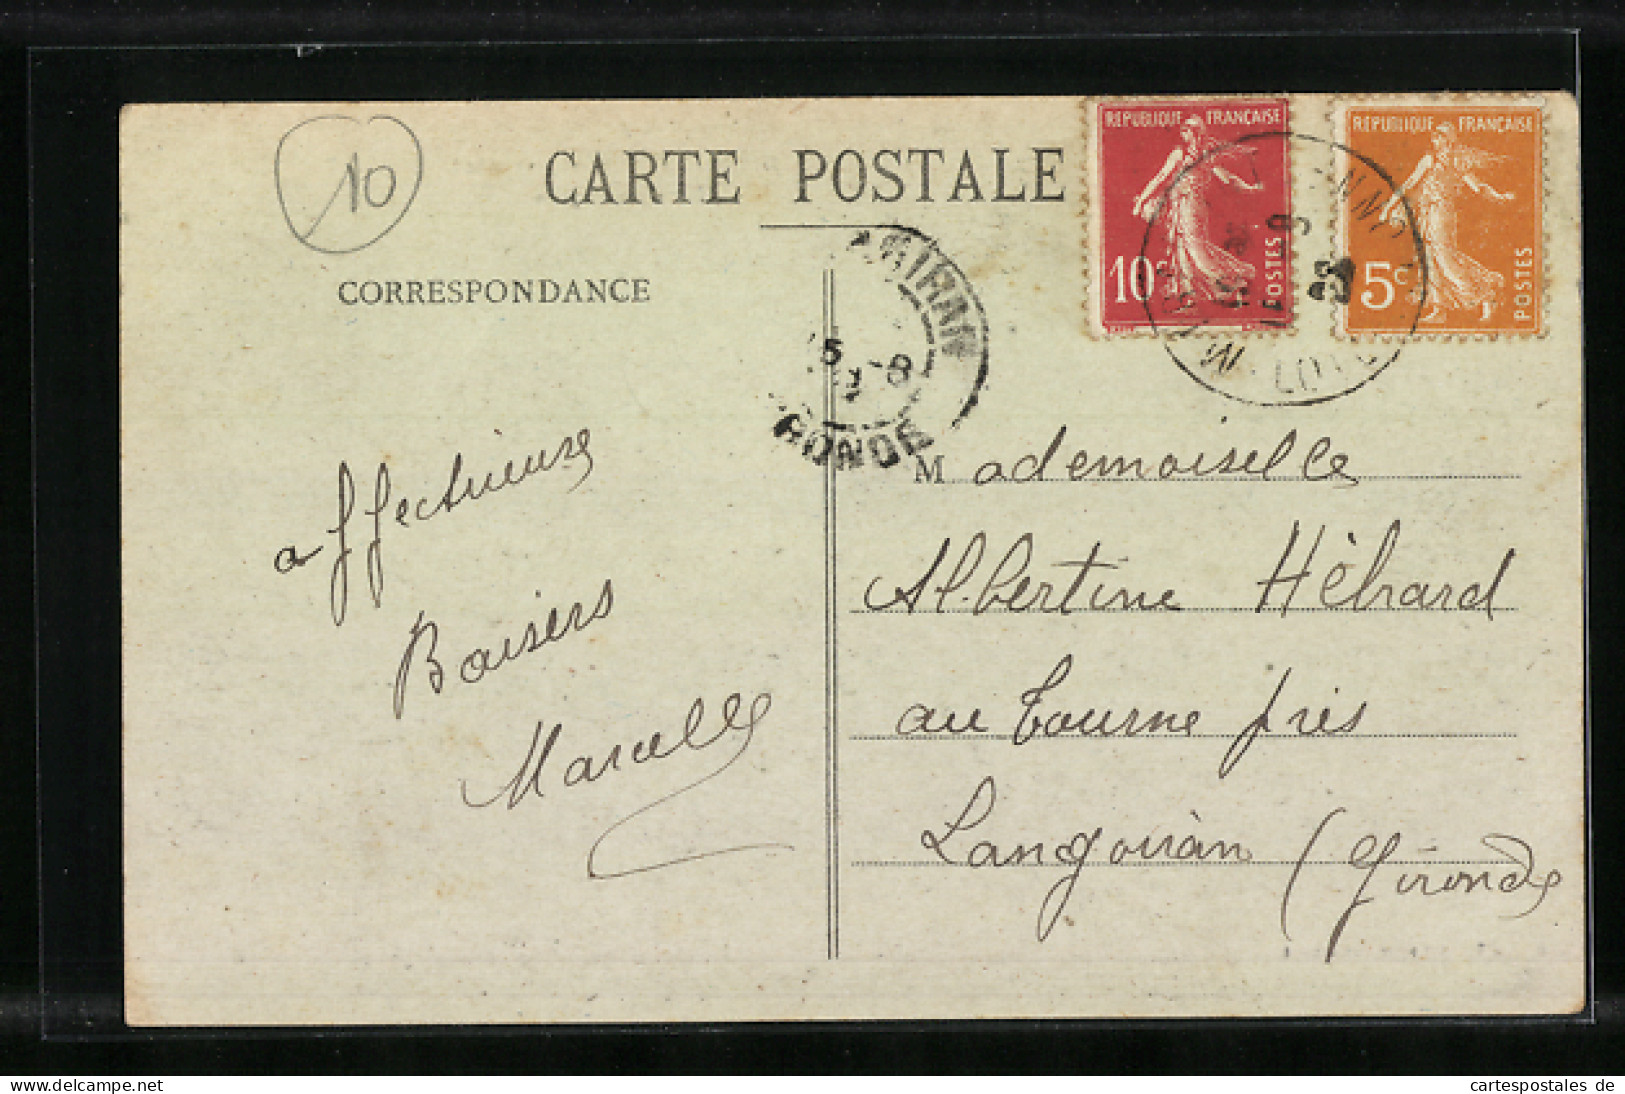 10
CARTE POSTALE
CORRESPONDANCE
REPUBLIQUE FRANÇAISE
10c
POSTES
REPUBLIQUE FRANÇAISE
5c
POSTES
affectueuse
Baisers
Marcelle
Mademoiselle
Albertine Hébrard
au Tourne près
Langoiran (Gironde
delcampe.net
cartespostales de